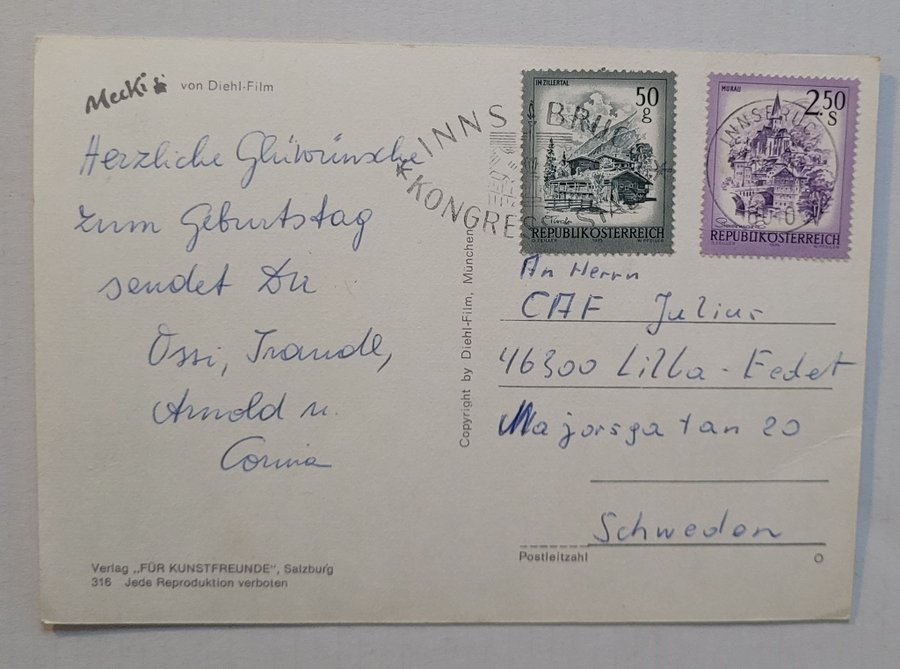 Mecki von Diehl-Film
Herzliche Glüwünsche
zum Geburtstag
sendet Dir
Ossi, Traudl,
Arnold u.
Corina
Verlag „FÜR KUNSTFREUNDE", Salzburg
316 Jede Reproduktion verboten
Copyright by Diehl-Film, München
INNSBRUCK
KONGRESS
IM ZILLERTAL
50
g
Tirol
REPUBLIK ÖSTERREICH
MURAU
2.50
S
INNSBRUCK
Steiermark
REPUBLIK ÖSTERREICH
An Herrn
CAF Julius
46300 Lilla-Eedet
Majorsgatan 20
Schweden
Postleitzahl